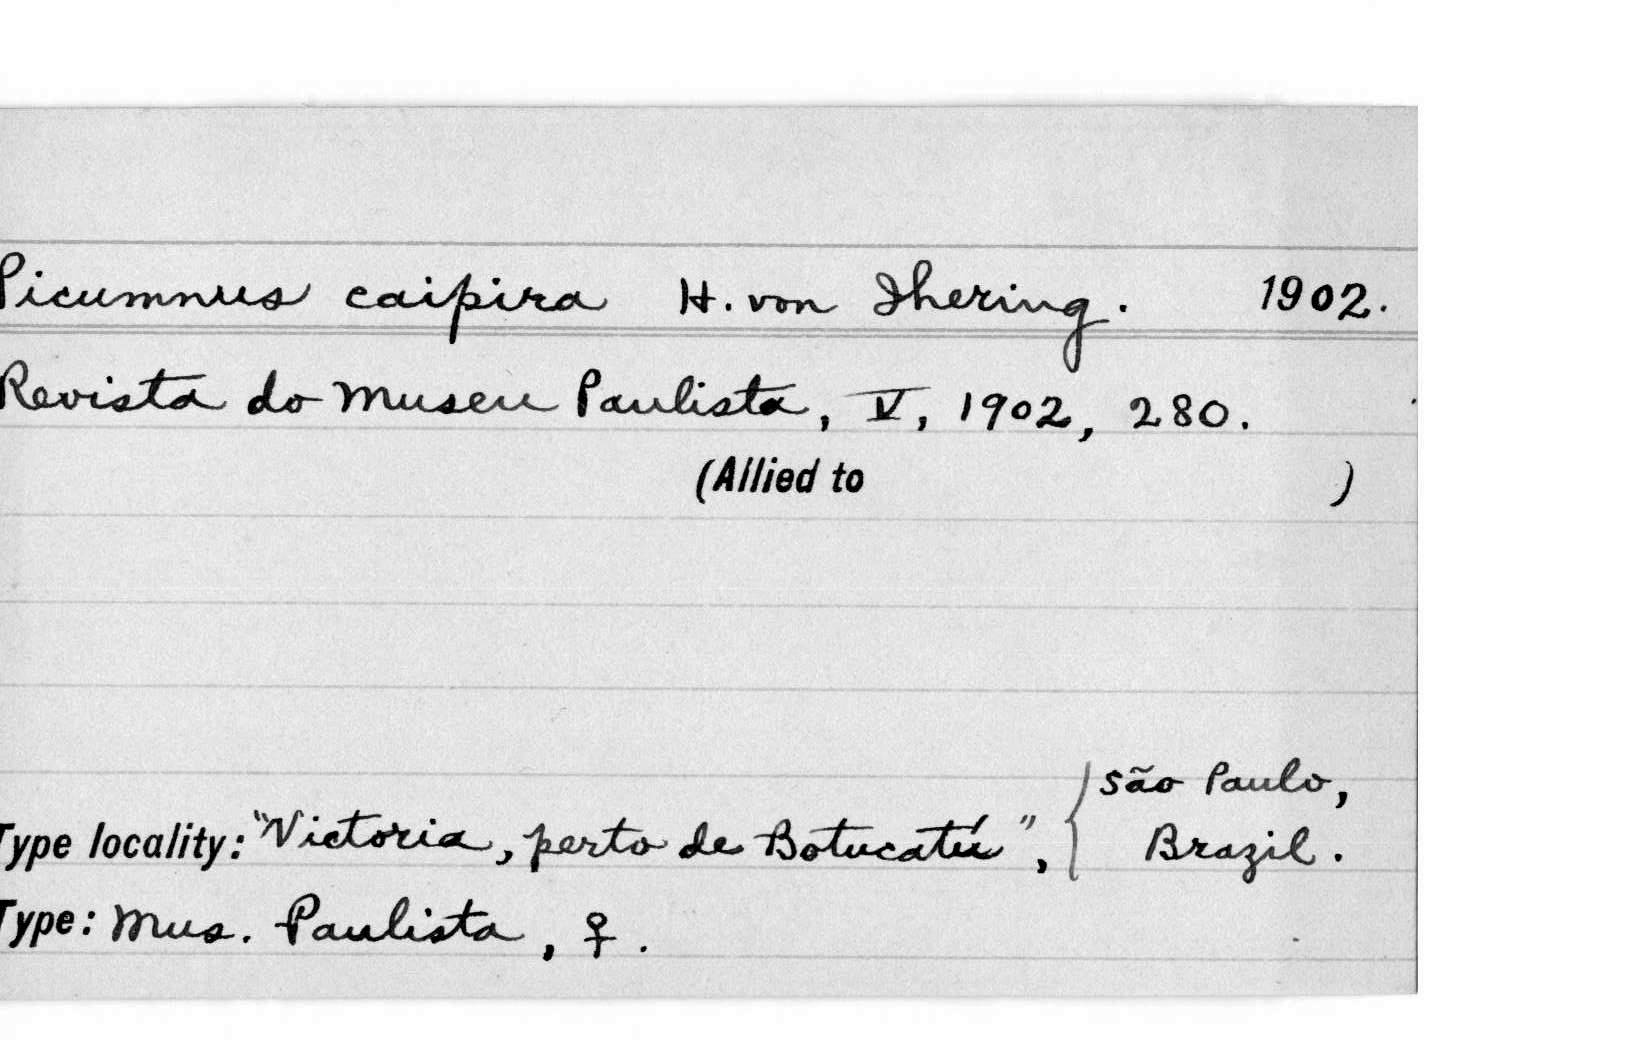 Picumnus caipira H. von Ihering. 1902.
Revista do Museu Paulista, V, 1902, 280.
(Allied to )
São Paulo,
Type locality: "Victoria, perto de Botucatú", { Brazil.
Type: Mus. Paulista, ♀.